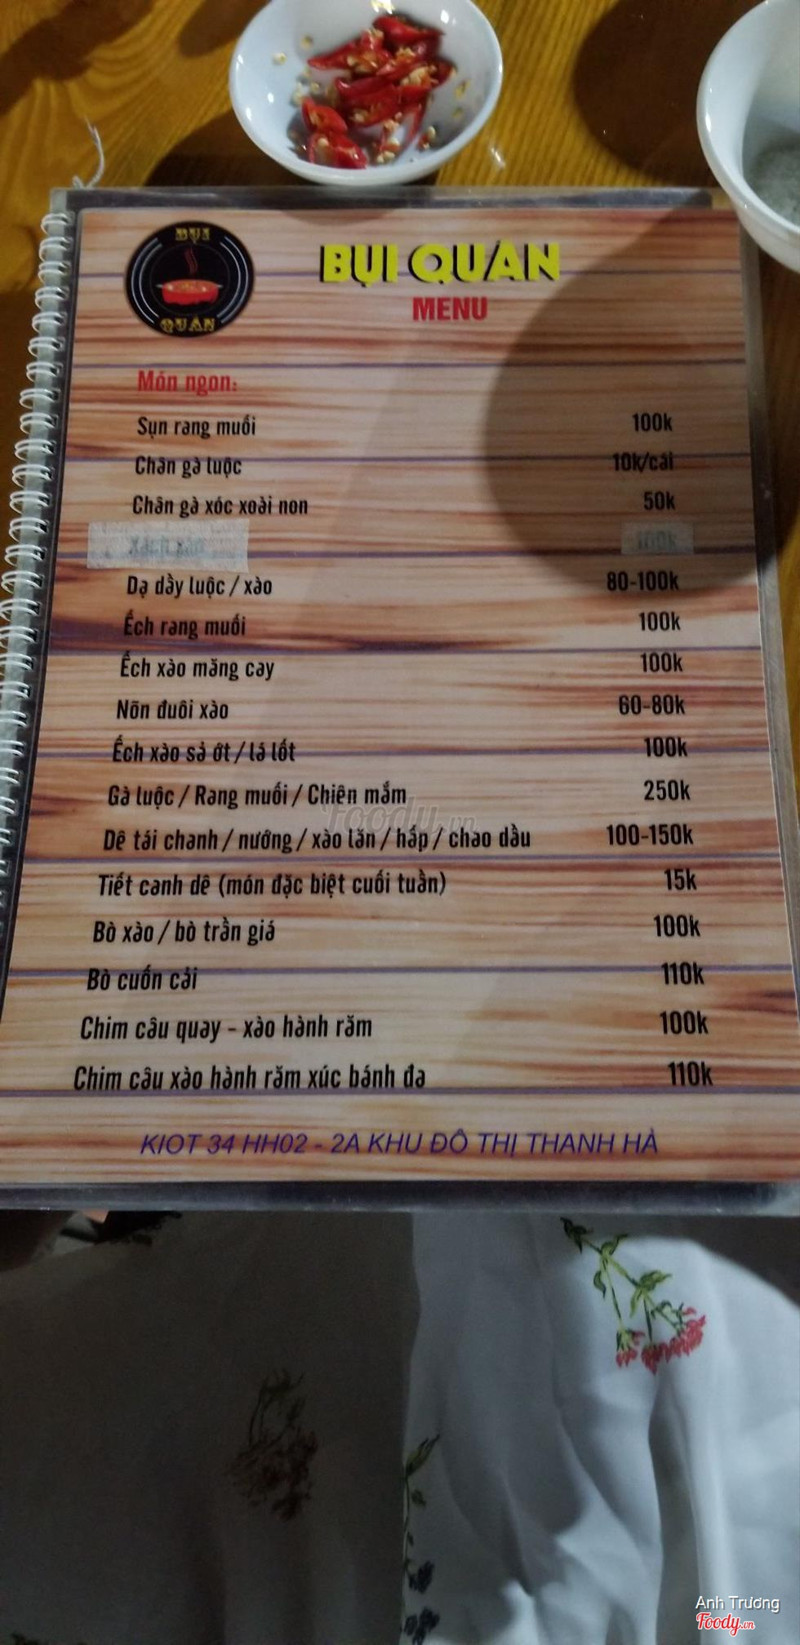 BỤI
QUÁN
BỤI QUÁN
MENU
Món ngon:
Sụn rang muối 100k
Chân gà luộc 10k/cái
Chân gà xóc xoài non 50k
100k
Dạ dầy luộc / xào 80-100k
Ếch rang muối 100k
Ếch xào măng cay 100k
Nõn đuôi xào 60-80k
Ếch xào sả ớt / lá lốt 100k
Gà luộc / Rang muối / Chiên mắm 250k
Dê tái chanh / nướng / xào lăn / hấp / chao dầu 100-150k
Tiết canh dê (món đặc biệt cuối tuần) 15k
Bò xào / bò trần giá 100k
Bò cuốn cải 110k
Chim câu quay - xào hành răm 100k
Chim câu xào hành răm xúc bánh đa 110k
KIOT 34 HH02 - 2A KHU ĐÔ THỊ THANH HÀ
Foody.vn
Anh Trương
Foody.vn